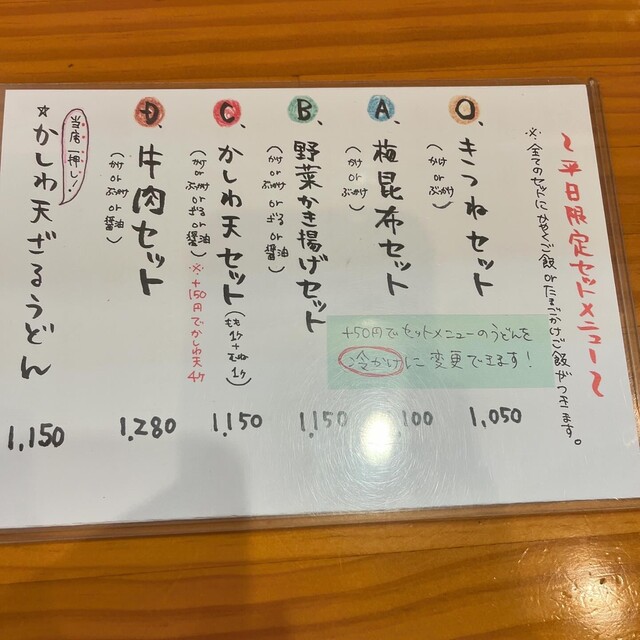 ～平日限定セットメニュー～
※全てのセットにかやくご飯orたまごかけご飯がつきます。
O、きつねセット
(かけorぶっかけ)
1,050
A、梅昆布セット
(かけorぶっかけ)
,100
B、野菜かき揚げセット
(かけorぶっかけorざるor醤油)
1,150
C、かしわ天セット(もも1ケ+むね1ケ)
(かけorぶっかけorざるor醤油)
※+150円でかしわ天4ケ
1,150
D、牛肉セット
(かけorぶっかけor醤油)
1,280
当店一押し!
☆かしわ天ざるうどん
1,150
+50円でセットメニューのうどんを
冷かけに変更できます!